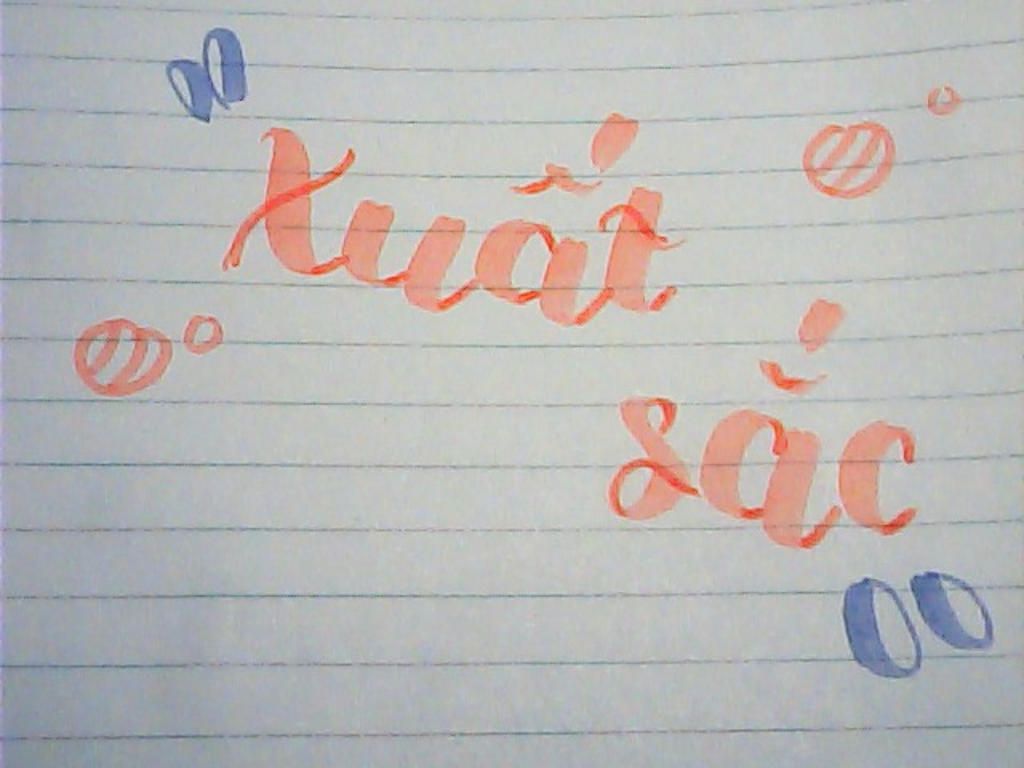 Xuất
sắc